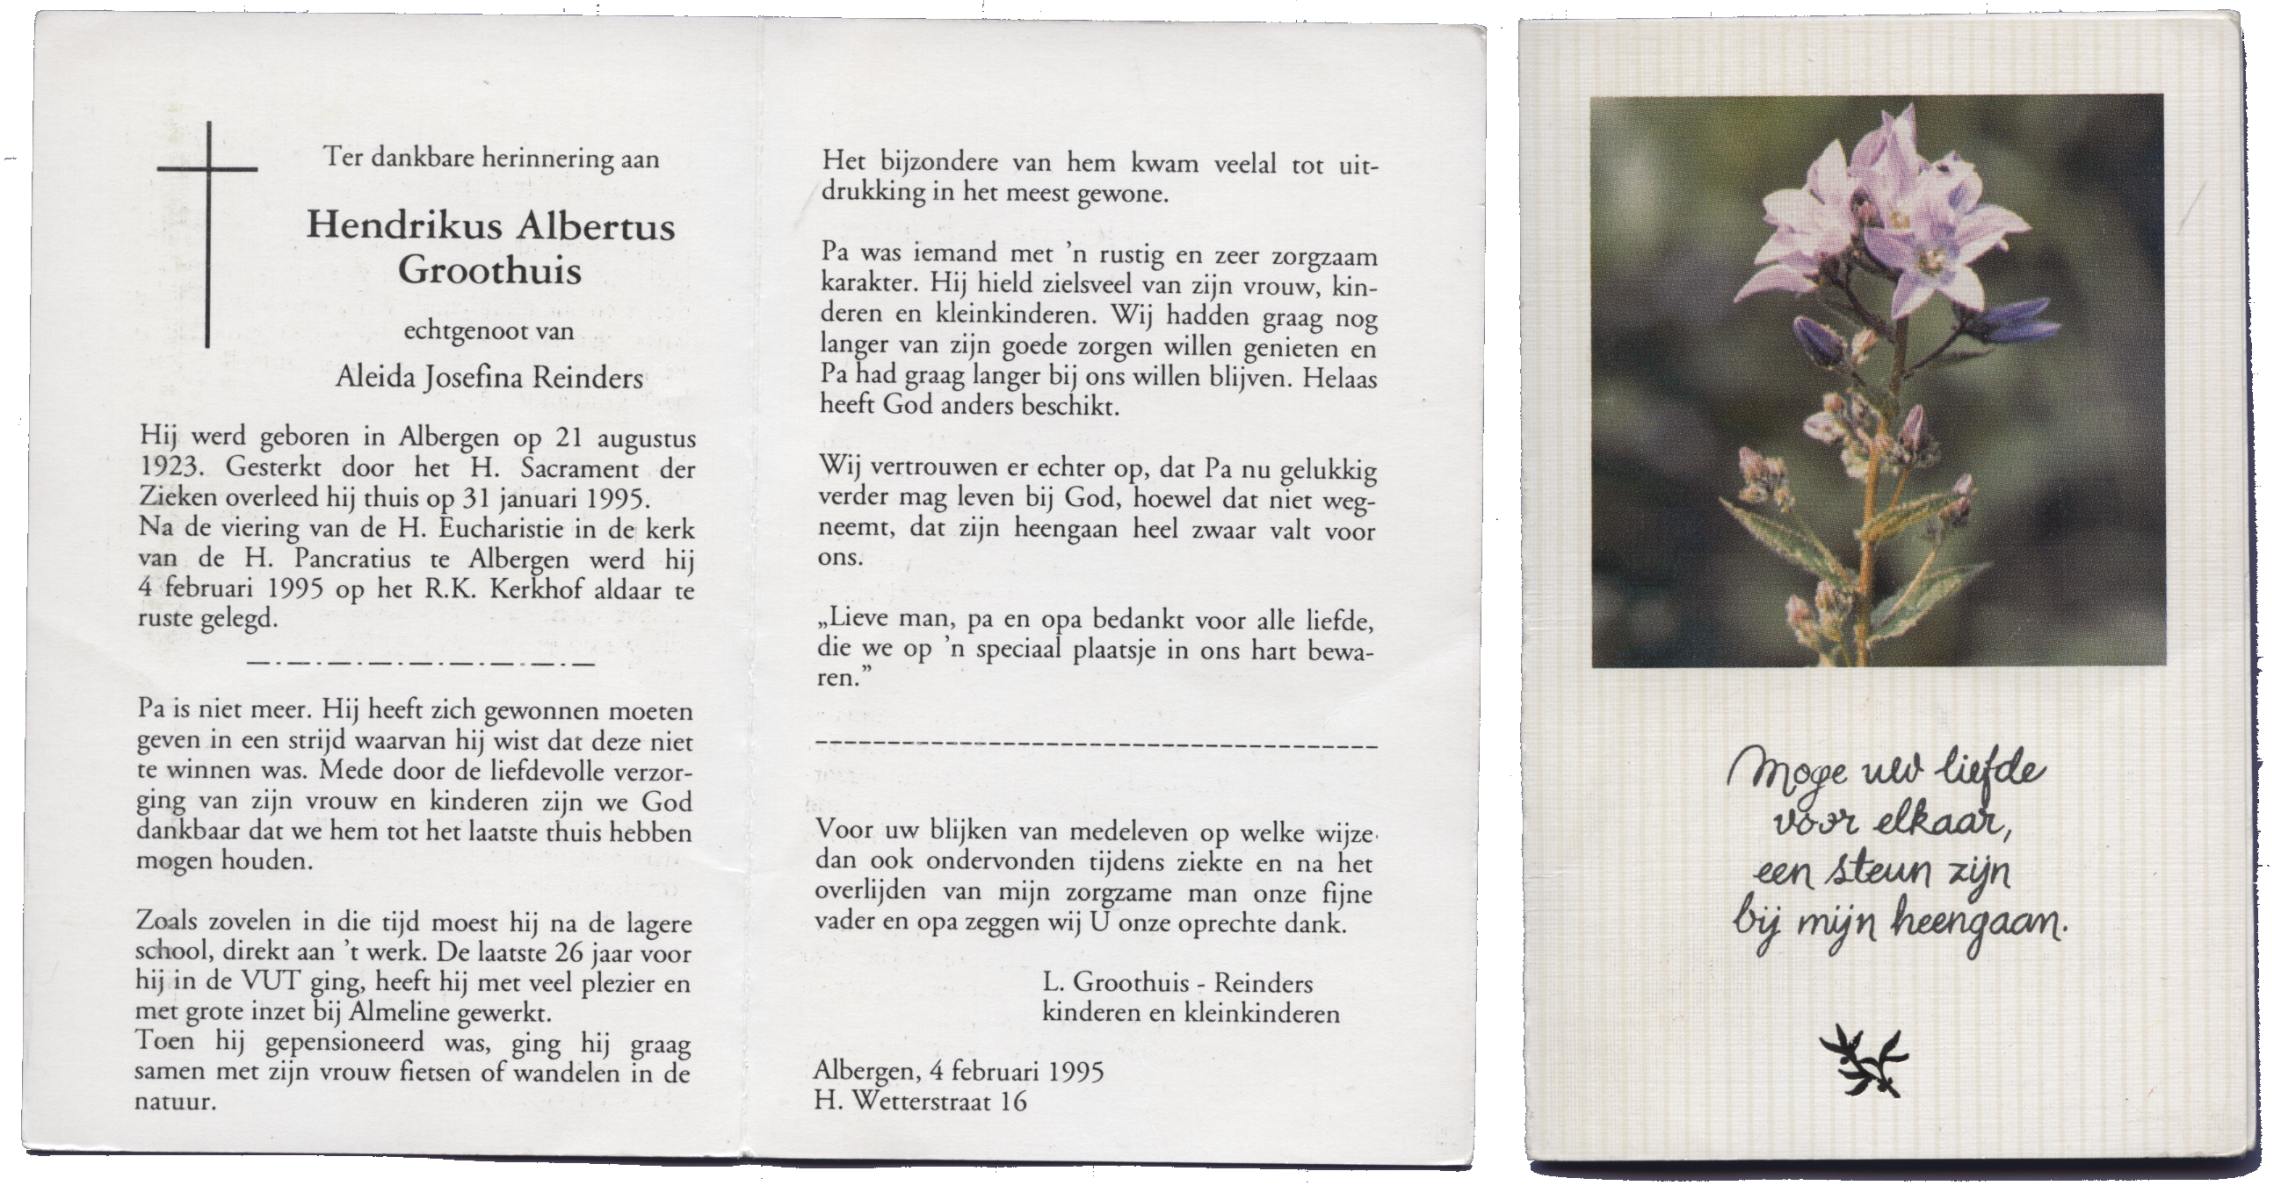 Ter dankbare herinnering aan
Hendrikus Albertus
Groothuis
echtgenoot van
Aleida Josefina Reinders
Hij werd geboren in Albergen op 21 augustus
1923. Gesterkt door het H. Sacrament der
Zieken overleed hij thuis op 31 januari 1995.
Na de viering van de H. Eucharistie in de kerk
van de H. Pancratius te Albergen werd hij
4 februari 1995 op het R.K. Kerkhof aldaar te
ruste gelegd.
Pa is niet meer. Hij heeft zich gewonnen moeten
geven in een strijd waarvan hij wist dat deze niet
te winnen was. Mede door de liefdevolle verzor-
ging van zijn vrouw en kinderen zijn we God
dankbaar dat we hem tot het laatste thuis hebben
mogen houden.
Zoals zovelen in die tijd moest hij na de lagere
school, direkt aan 't werk. De laatste 26 jaar voor
hij in de VUT ging, heeft hij met veel plezier en
met grote inzet bij Almeline gewerkt.
Toen hij gepensioneerd was, ging hij graag
samen met zijn vrouw fietsen of wandelen in de
natuur.
Het bijzondere van hem kwam veelal tot uit-
drukking in het meest gewone.
Pa was iemand met 'n rustig en zeer zorgzaam
karakter. Hij hield zielsveel van zijn vrouw, kin-
deren en kleinkinderen. Wij hadden graag nog
langer van zijn goede zorgen willen genieten en
Pa had graag langer bij ons willen blijven. Helaas
heeft God anders beschikt.
Wij vertrouwen er echter op, dat Pa nu gelukkig
verder mag leven bij God, hoewel dat niet weg-
neemt, dat zijn heengaan heel zwaar valt voor
ons.
„Lieve man, pa en opa bedankt voor alle liefde,
die we op 'n speciaal plaatsje in ons hart bewa-
ren.”
Voor uw blijken van medeleven op welke wijze
dan ook ondervonden tijdens ziekte en na het
overlijden van mijn zorgzame man onze fijne
vader en opa zeggen wij U onze oprechte dank.
L. Groothuis - Reinders
kinderen en kleinkinderen
Albergen, 4 februari 1995
H. Wetterstraat 16
Moge uw liefde
voor elkaar,
een steun zijn
bij mijn heengaan.